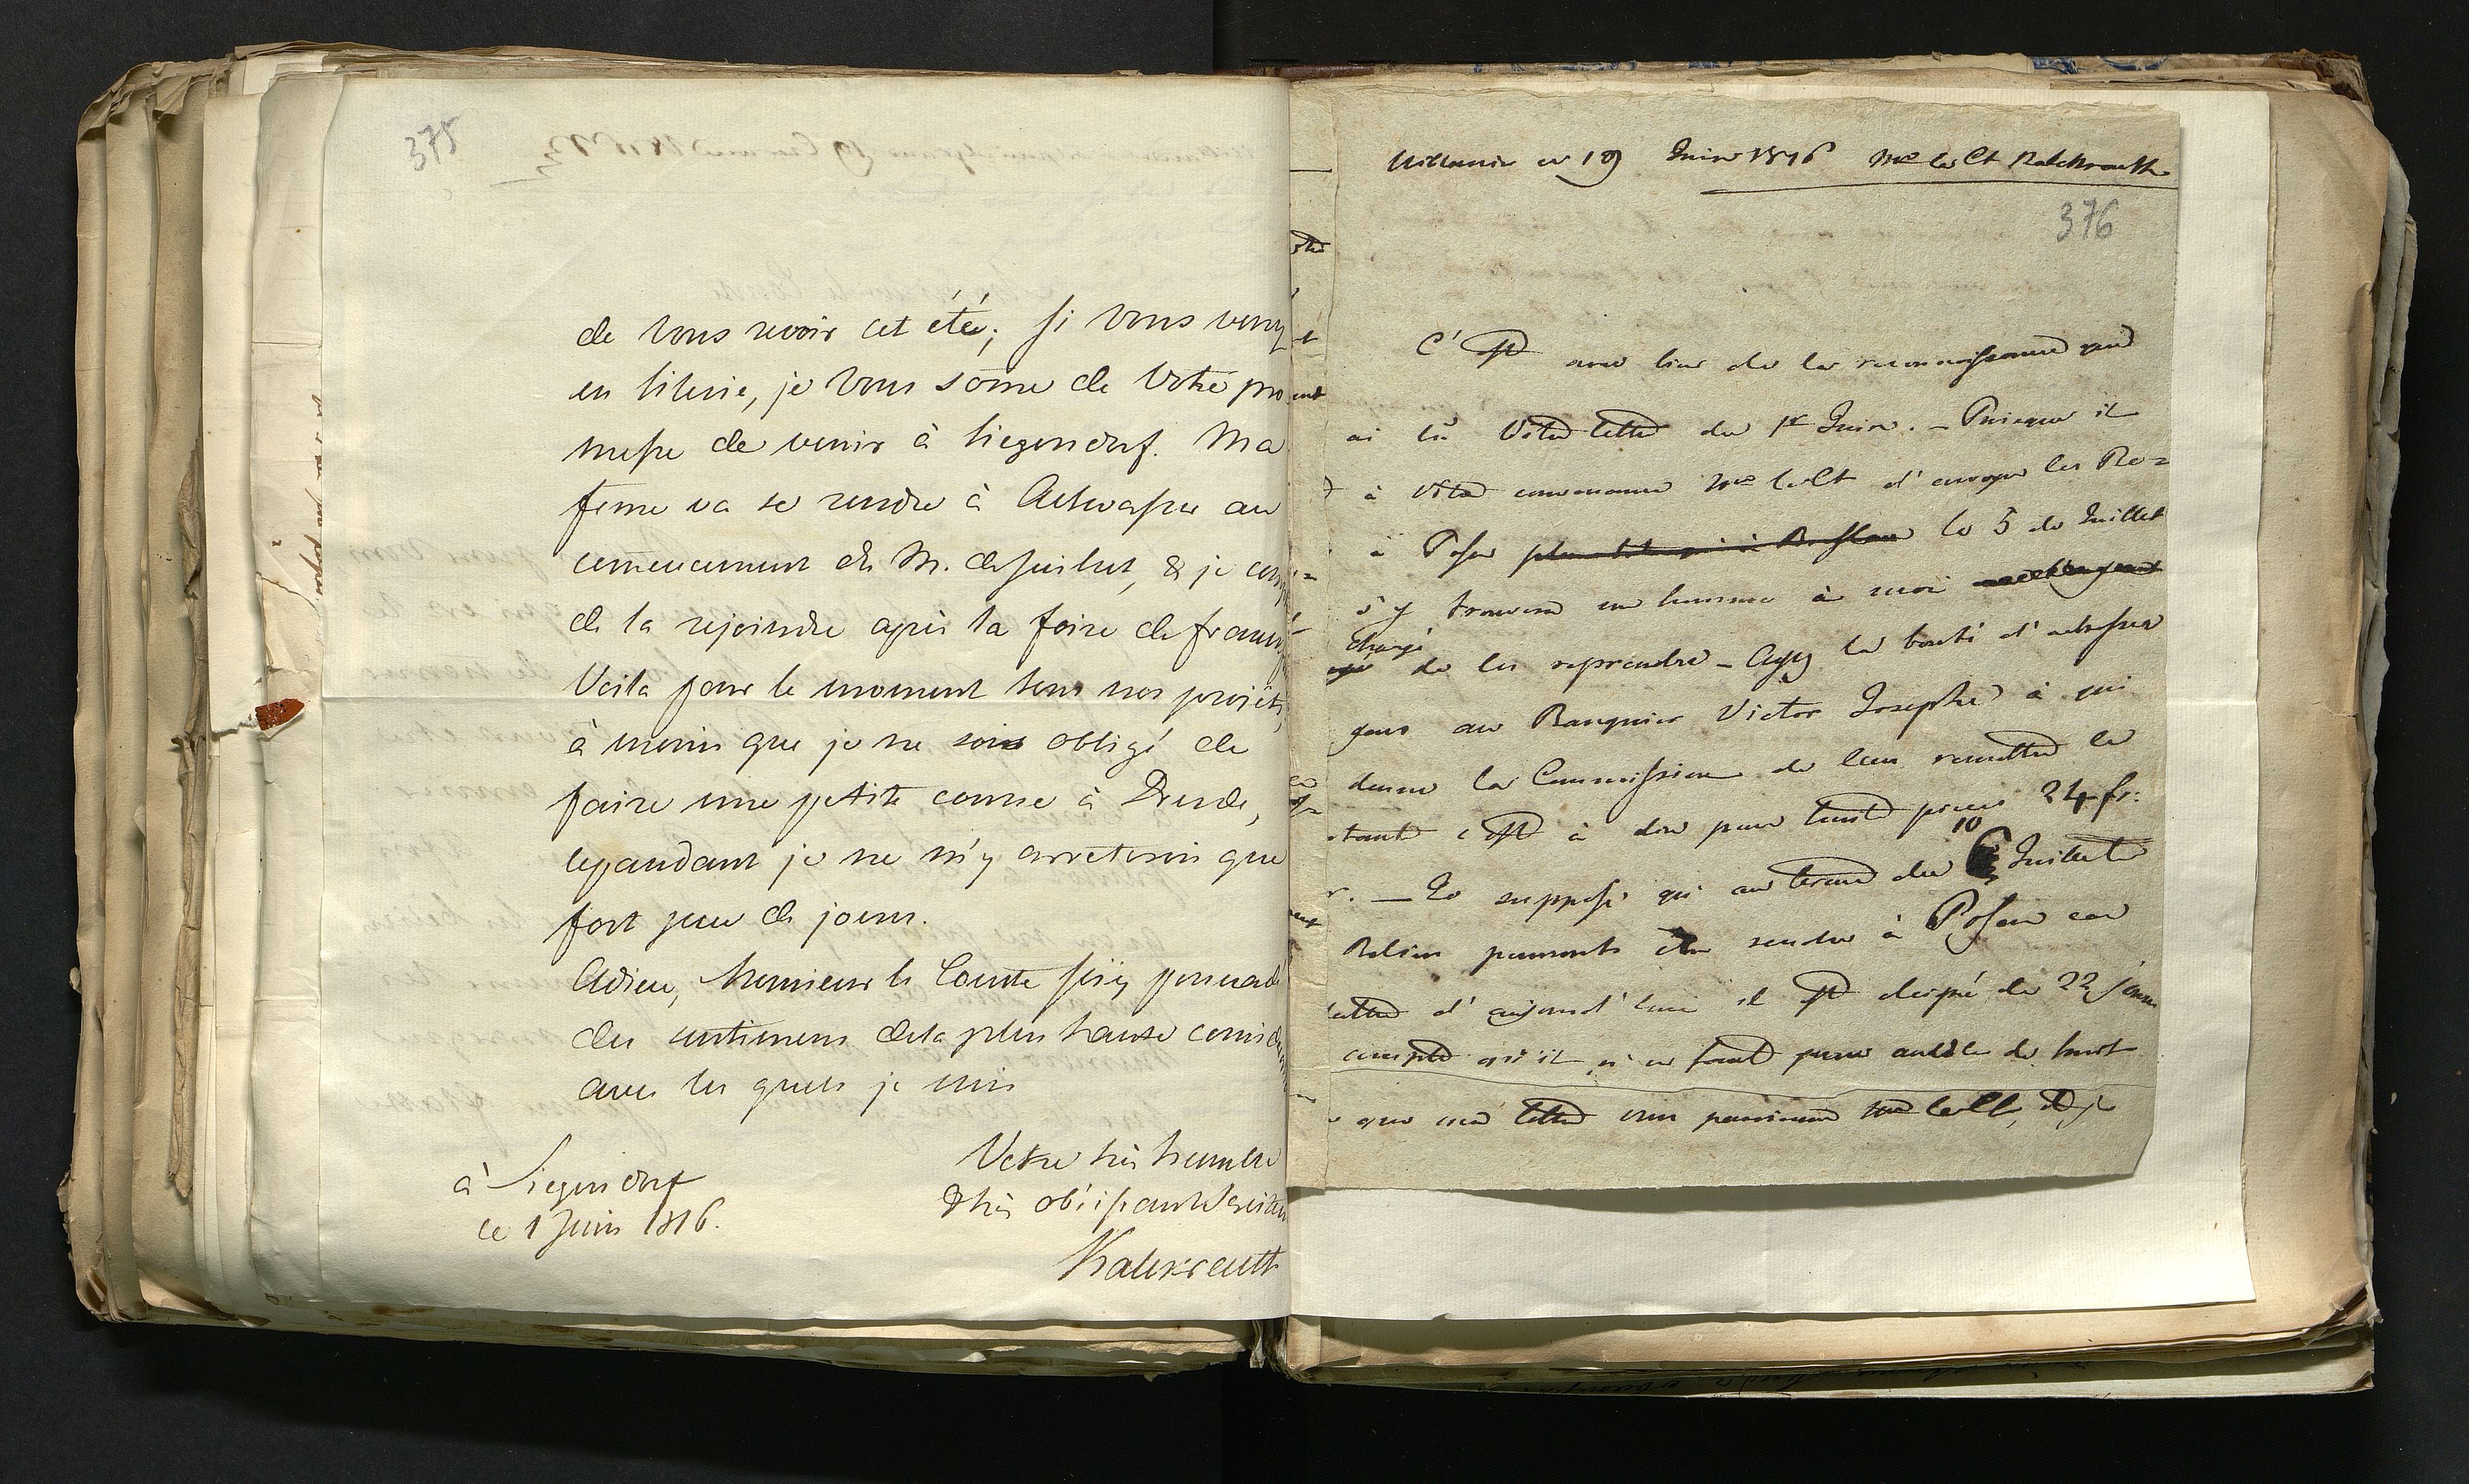 375
de vous revoir cet été; si vous venez
en Silesie, je vous somme de votre pro
messe de venir à Siegendorf. Ma
feme va se rendre à Altwasser au
commencement du M. de Juillet, & je
de la rejoindre après la foire de
Voila pour le moment tous nos projèts,
à moins que je ne sois obligé de
faire une petite course à Dresde,
cependant je ne m'y arreterois que
fort peu de jours.
Adieu, Monsieur le Comte soiez persuadé
des sentimens de la plus haute
avec les quels je suis
Votre très humble
& très obéissant
Kalckreuth
à Siegendorf
ce 1 Juin 1816.
Willanow ce 19 Juin 1816 Mr le Ct Kalckreuth
376
C'est avec bien de la reconnoissance que
ai lû Votre lettre du 1r Juin. - Puisque il
à Votre convenance Mr le Ct d'envoyer les Be=
à Posen le 5 de Juillet
s'y trouvera un homme à moi
chargé
de les reprendre - Ayez la bonté d'adresser
gens au Banquier Victor Josephe à qui
donne la Commission de leur remettre le
c'est à dire pour pieces 24 fr:
10
- Je suppose qu'au terme du Juillet
Beliers pourront se rendre à Posen car
lettre d'aujourd'hui il est de 22 jours
compte qu'il n'en faut pour de huit
que ma lettre vous parvienne Mr le Ct, et je